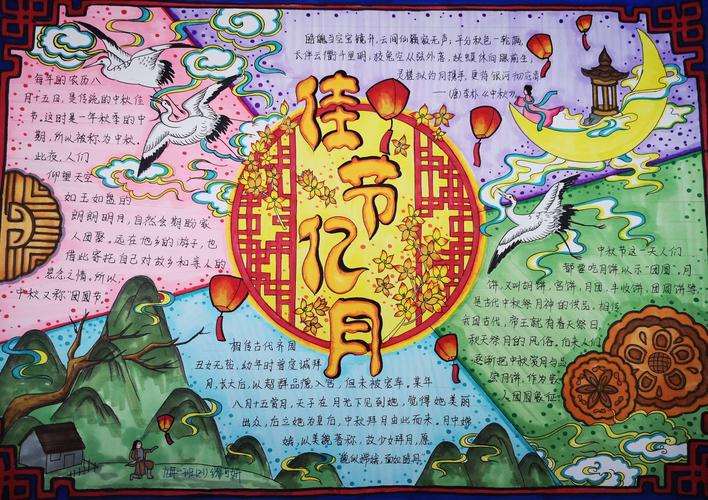 皓魄当空宝镜升,云间仙籁寂无声,平分秋色一轮满,
长伴云衢千里明,狡兔空从弦外落,妖蟆休向眼前生,
灵槎拟约同携手,更待银河彻底清。
——(唐)李朴《中秋》
佳节亿月
每年的农历八
月十五日,是传统的中秋佳
节。这时是一年秋季的中
期,所以被称为中秋。
此夜,人们
仰望天空
如玉如盘的
朗朗明月,自然会期盼家
人团聚。远在他乡的游子,也
借此寄托自己对故乡和亲人的
思念之情。所以,
中秋又称“团圆节”
中秋节这一天人们
都要吃月饼以示“团圆”。月
饼,又叫胡饼,宫饼,月团,丰收饼,团圆饼等,
是古代中秋祭月神的供品。相传
我国古代,帝王就有春天祭日,
秋天祭月的风俗,后来人们
逐渐把中秋赏月与品
尝月饼,作为家
人团圆象征。
相传古代齐国
丑女无盐,幼年时曾虔诚拜
月,长大后,以超群品德入宫,但未被宠幸。某年
八月十五赏月,天子在月光下见到她,觉得她美丽
出众,后立她为皇后,中秋拜月由此而来。月中嫦
娥,以美貌著称,故少女拜月,愿
貌似嫦娥,面如皓月。